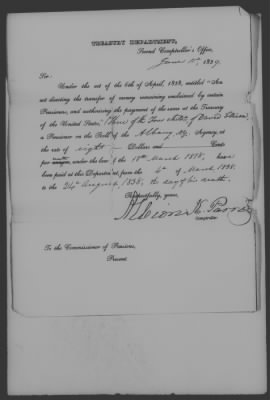 TREASURY DEPARTMENT,
Second Comptroller's Office,
June 1839.
Sir:
Under the act of the 6th of April, 1838, entitled "An
act directing the transfer of money remaining unclaimed by certain
Pensioners, and authorizing the payment of the same at the Treasury
of the United States," of the four child of David
a Pensioner on the Roll of the Albany Ny. Agency, at
the rate of eight Dollars and Cents
per month, under the law of the 18th March 1818, have
been paid at this Department, from the 4th of March 1838
to the 24th August, 1838, the day of his death.
Respectfully, yours,
Albion K. Parris
Comptroller
To the Commissioner of Pensions,
Present.